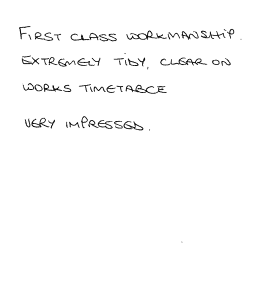 FIRST CLASS WORKMANSHIP.
EXTREMELY TIDY, CLEAR ON
WORKS TIMETABLE
VERY IMPRESSED.